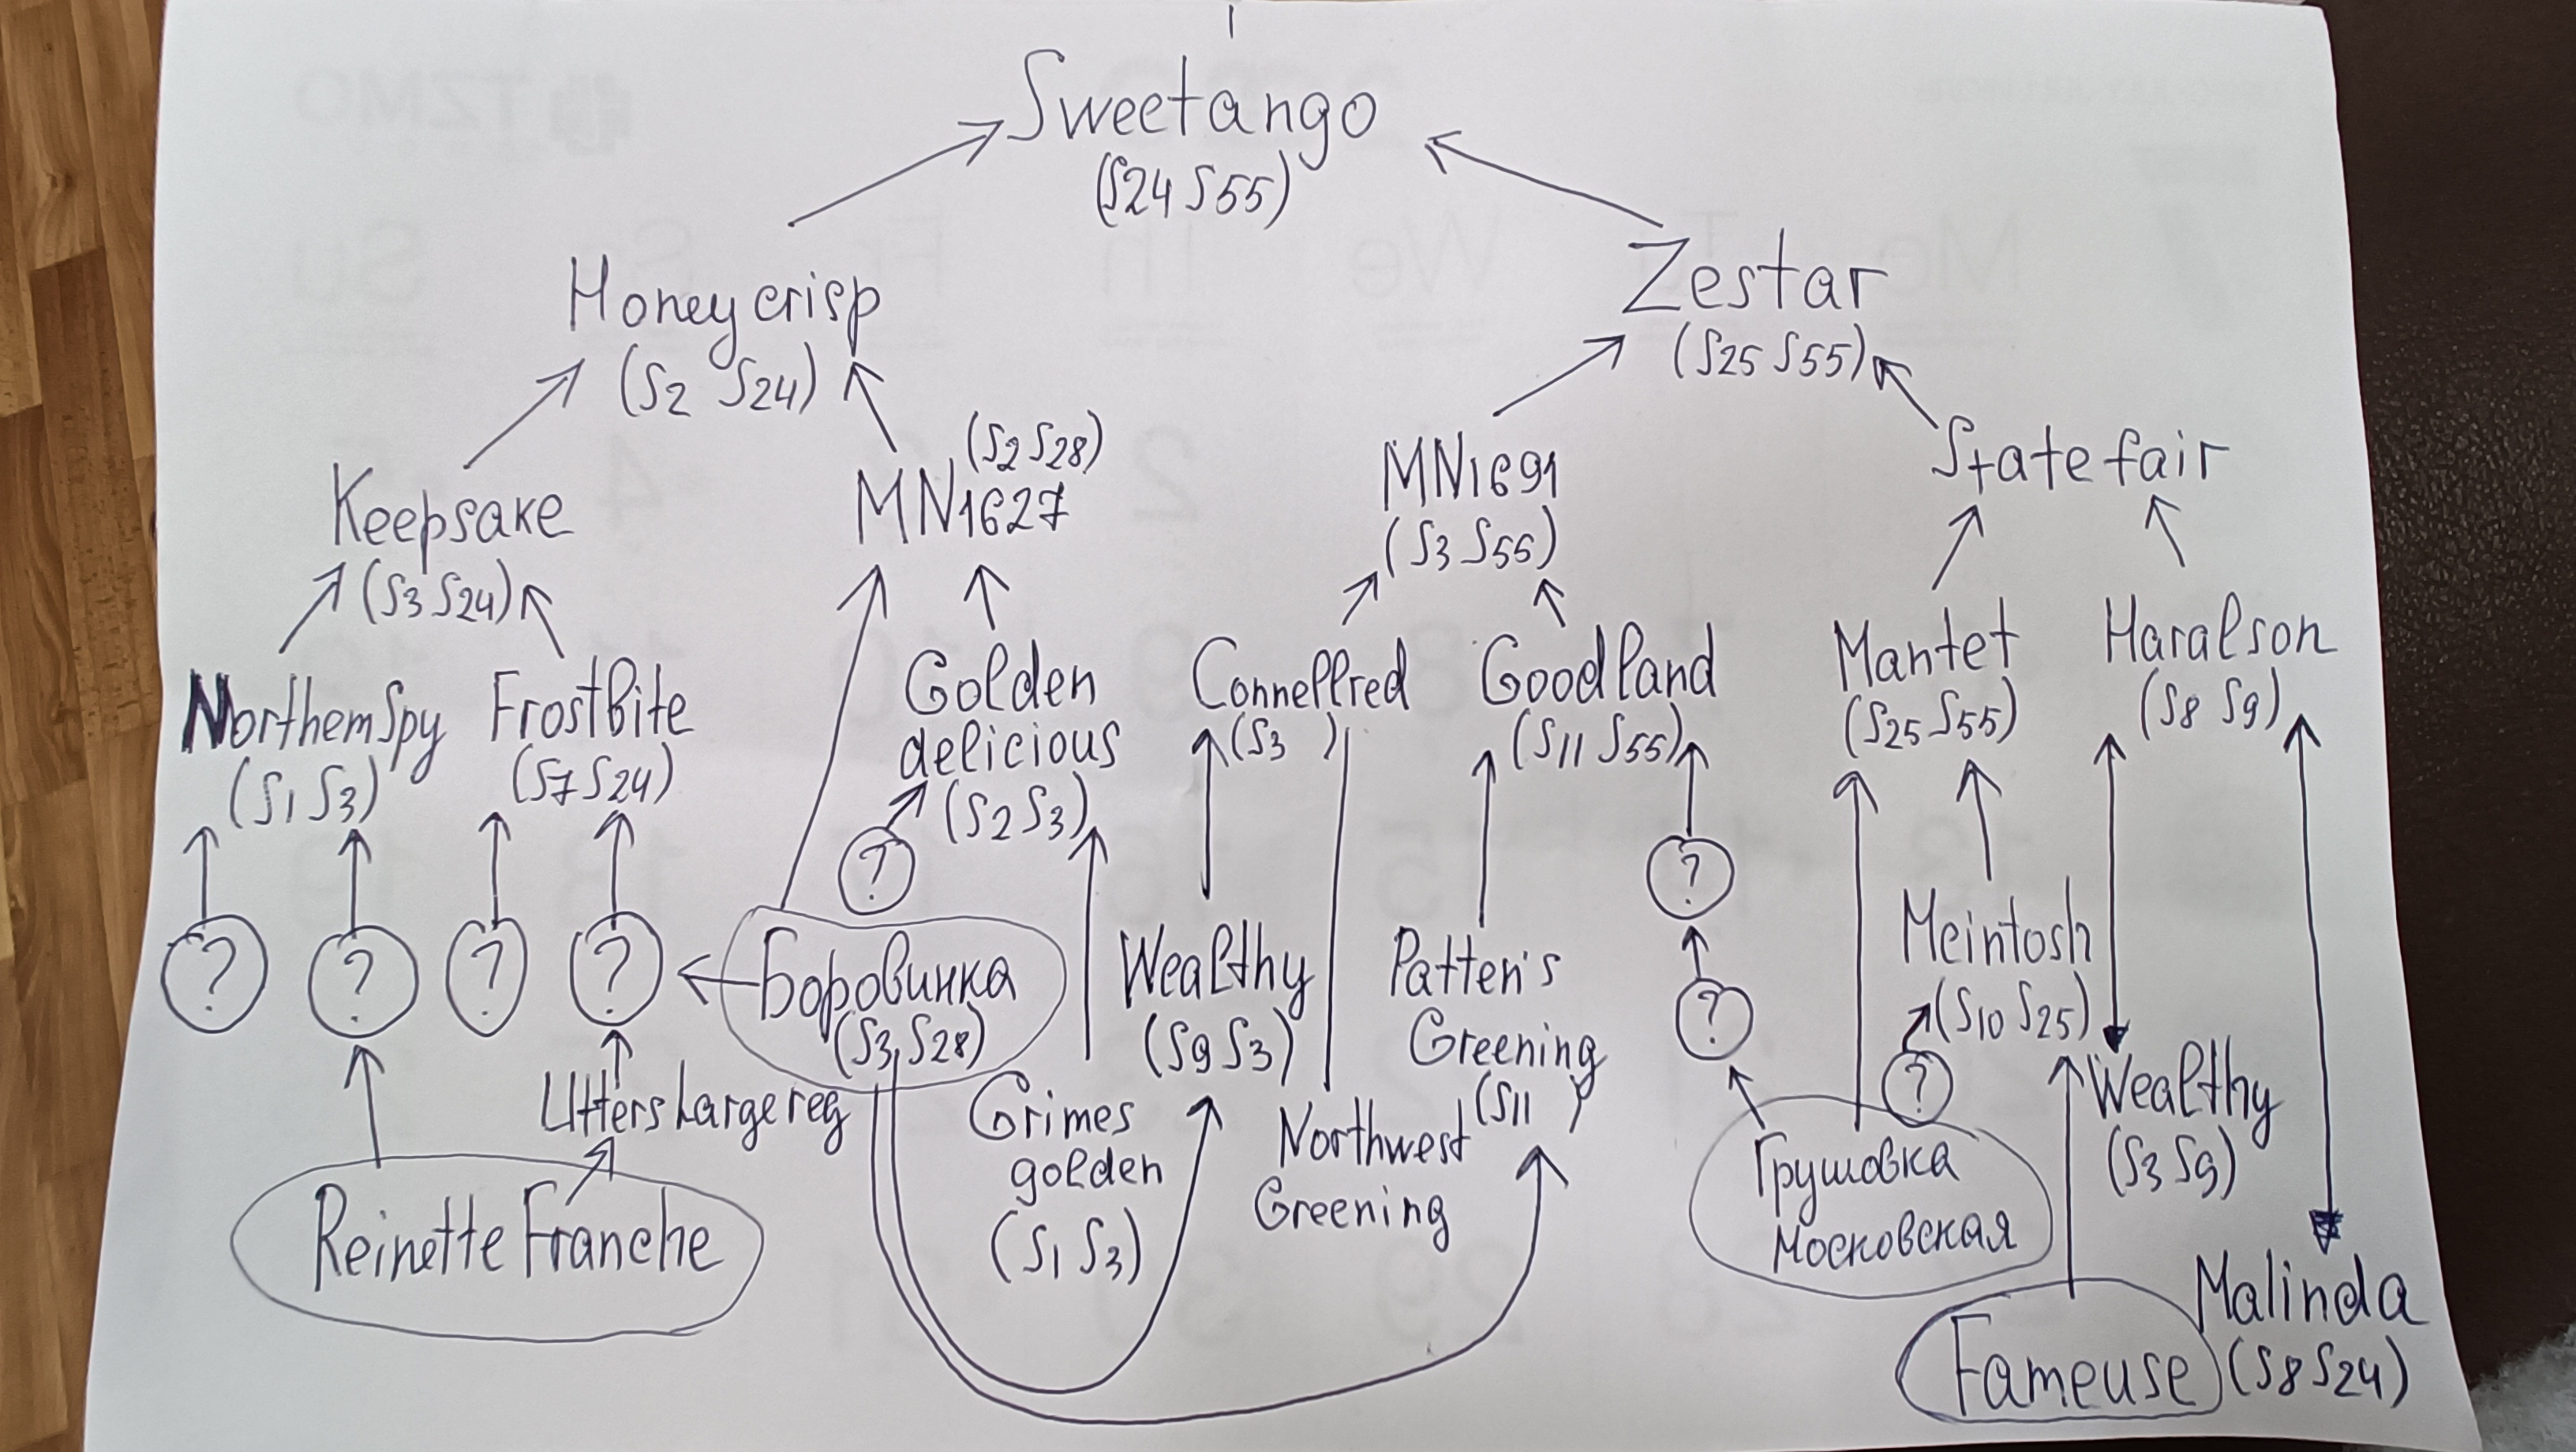 Sweetango
(S24 S55)
Honeycrisp
(S2 S24)
Zestar
(S25 S55)
Keepsake
(S3 S24)
(S2 S28)
MN1627
MN1691
(S3 S55)
State fair
Northern Spy
(S1 S3)
Frostbite
(S7 S24)
Golden
delicious
(S2 S3)
Connellred
(S3 )
Goodland
(S11 S55)
Mantet
(S25 S55)
Haralson
(S8 S9)
?
?
?
?
?
?
?
?
Боровинка
(S3, S28)
Wealthy
(S9 S3)
Patten's
Greening
(S11 )
Mcintosh
(S10 S25)
Utters Large reg
Grimes
golden
(S1 S3)
Northwest
Greening
Грушовка
Московская
Wealthy
(S3 S9)
Reinette Franche
Fameuse
Malinda
(S8 S24)
TZMO
Su
Sa
Fr
Th
We
Tu
Mo